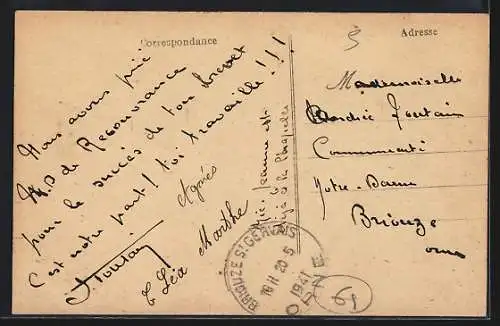 Correspondance
Nous avons prié
N.D de Recouvrance
pour le succès de ton brevet
C'est notre part! toi travaille!!!
Agnès
Marthe
& Léa
Jeanne est
déjà à la Chapelle
Adresse
5
Mademoiselle
Communauté
Notre-Dame
Briouze
Orne
BRIOUZE ST GERVAIS
ORNE
20-5
1941